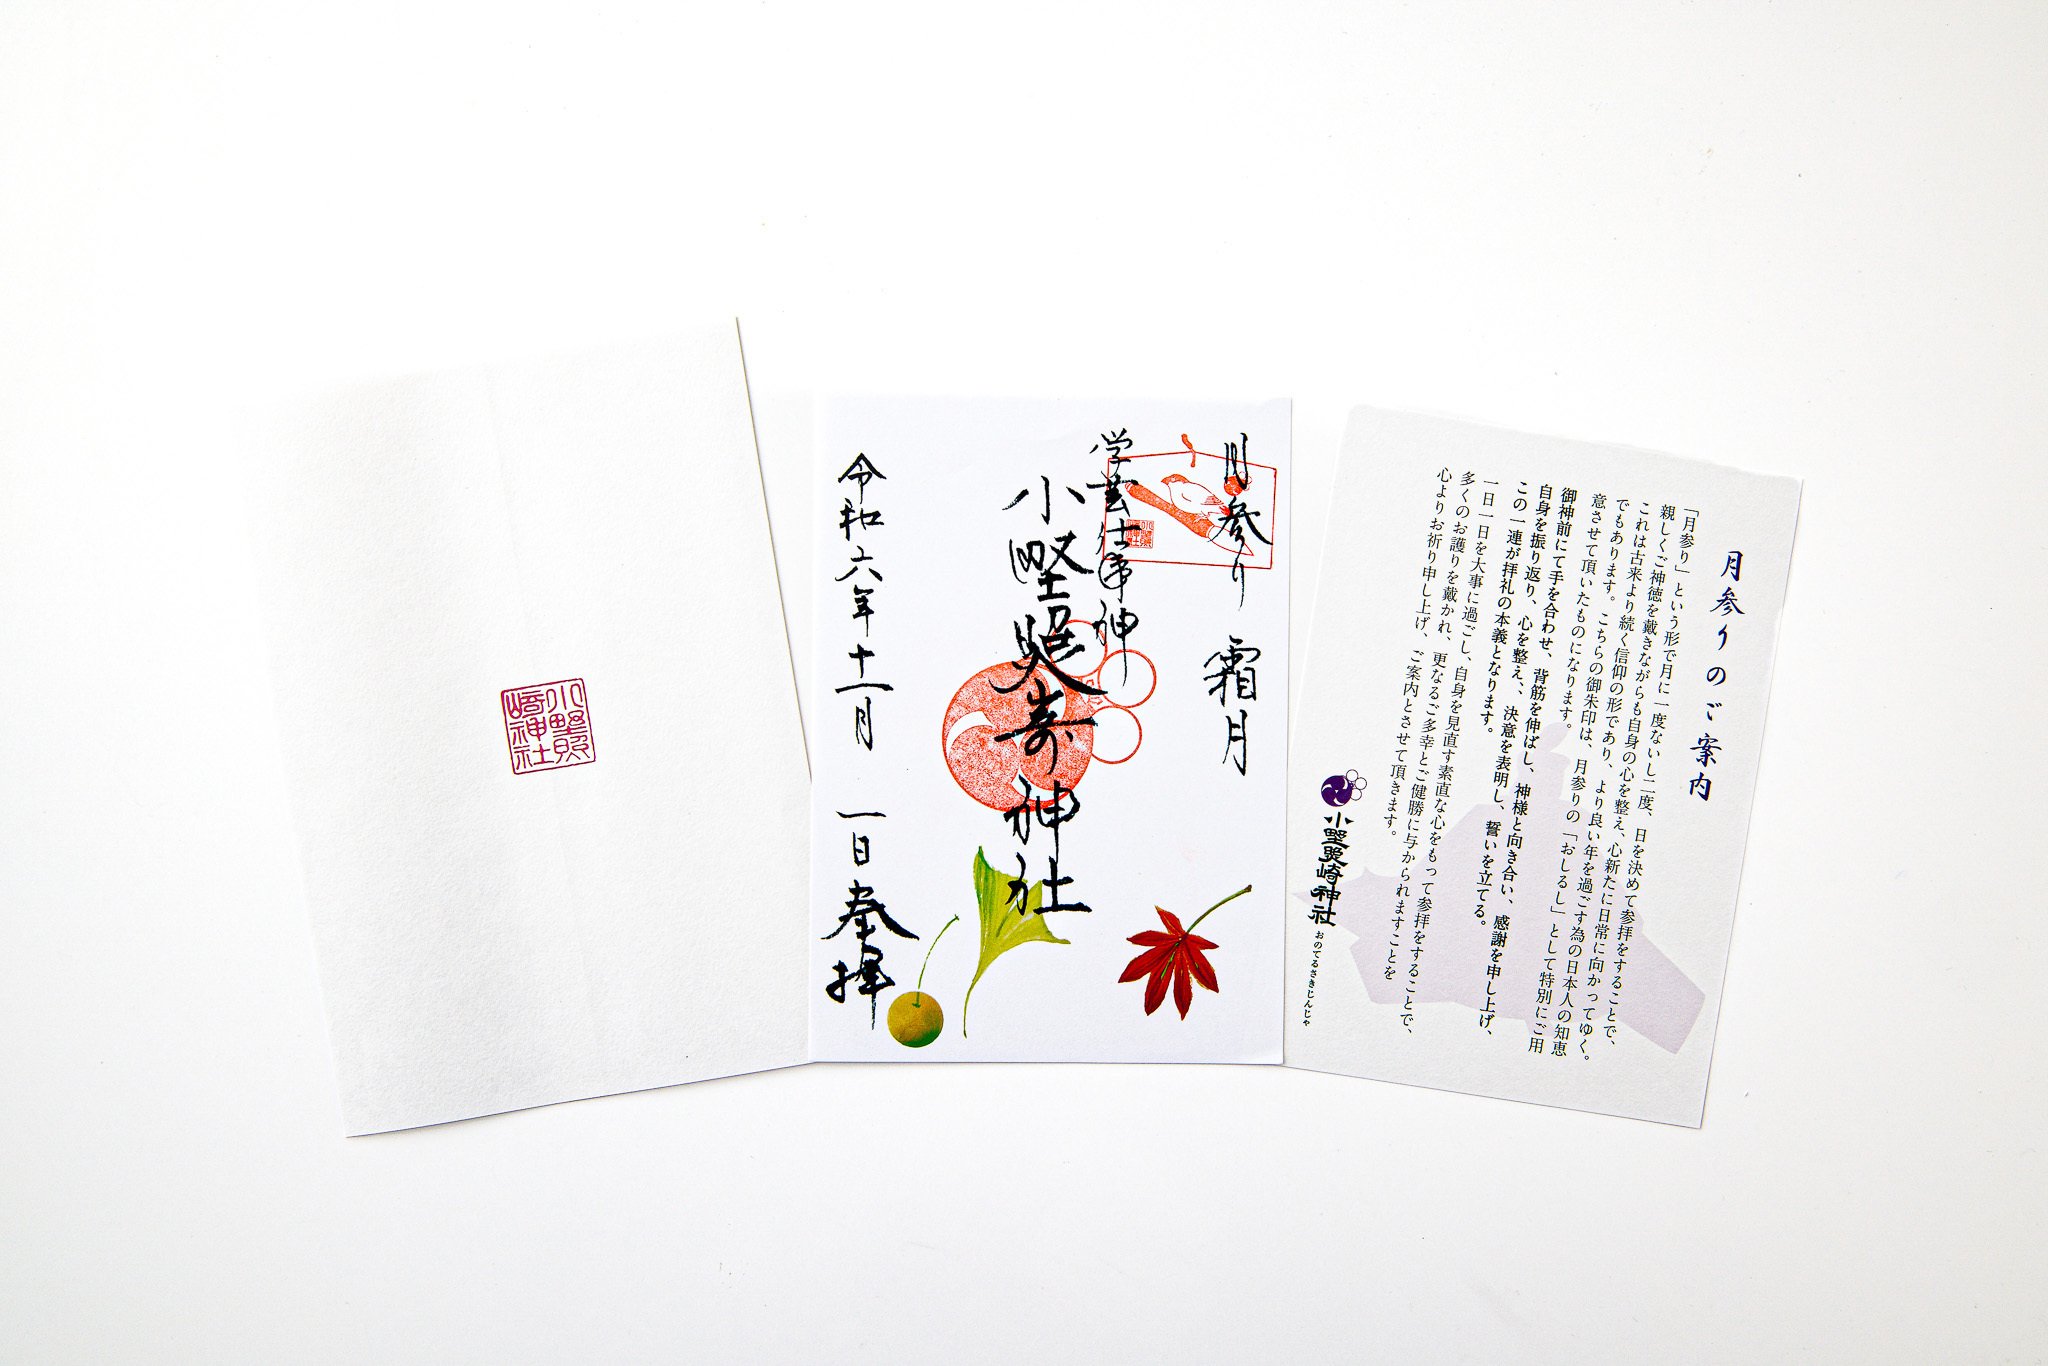 小野照
崎神社
月参り 霜月
学芸仕事神
小野照崎神社
令和六年十一月 一日 奉拝
月参りのご案内
「月参り」という形で月に一度ないし二度、日を決めて参拝をすることで、
親しくご神徳を戴きながらも自身の心を整え、心新たに日常に向かってゆく。
これは古来より続く信仰の形であり、より良い年を過ごす為の日本人の知恵
でもあります。こちらの御朱印は、月参りの「おしるし」として特別にご用
意させて頂いたものになります。
御神前にて手を合わせ、背筋を伸ばし、神様と向き合い、感謝を申し上げ、
自身を振り返り、心を整え、、決意を表明し、誓いを立てる。
この一連が拝礼の本義となります。
一日一日を大事に過ごし、自身を見直す素直な心をもって参拝をすることで、
多くのお護りを戴かれ、更なるご多幸とご健勝に与かられますことを
心よりお祈り申し上げ、ご案内とさせて頂きます。
小野照崎神社 おのてるさきじんじゃ